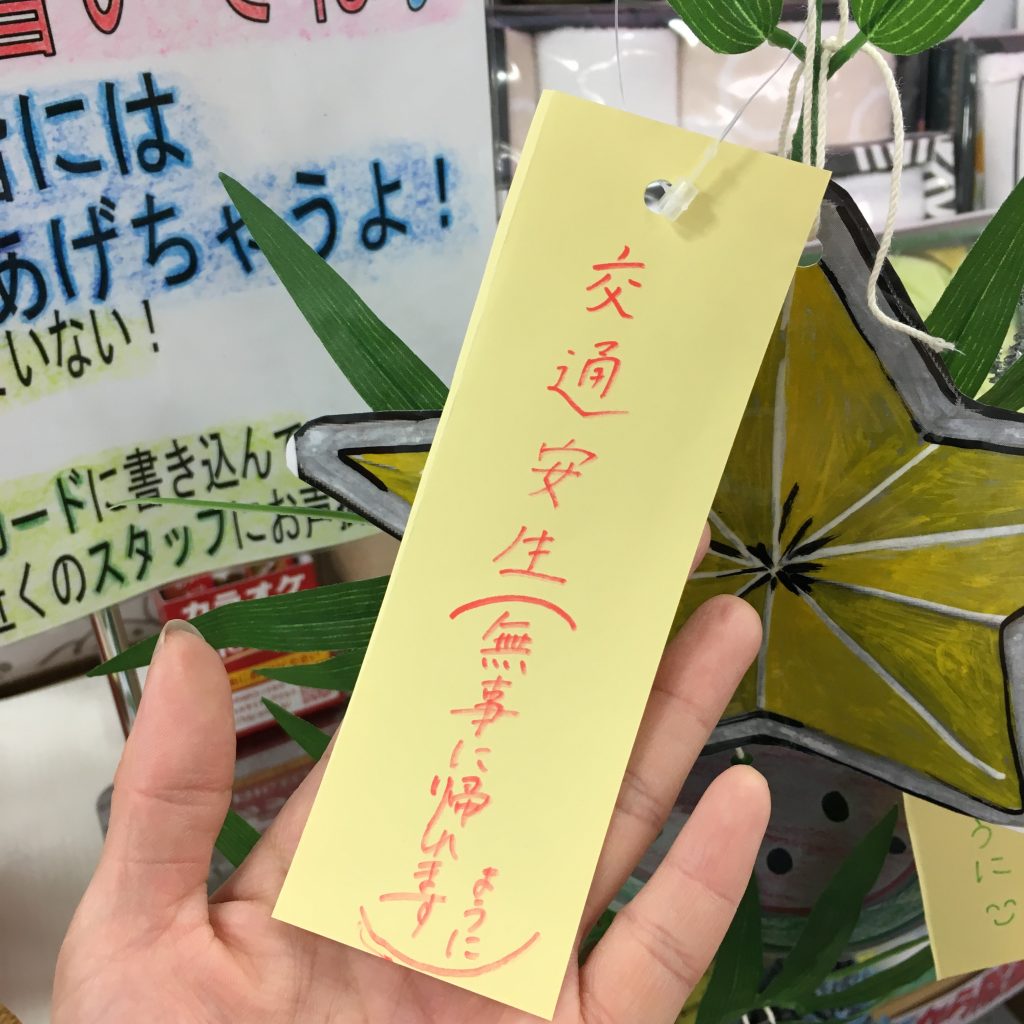 には
あげちゃうよ！
いない！
カードに書き込んで
近くのスタッフにお声
カラオケ
交通安生
（無事に帰れます
ように）
うに